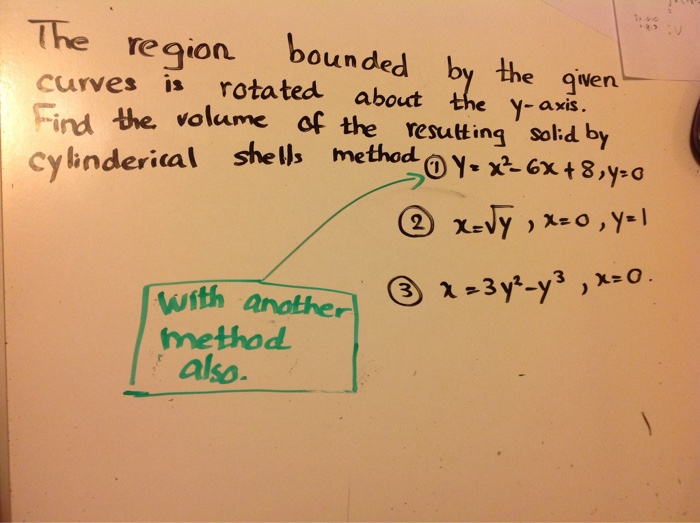 The region bounded by the given
curves is rotated about the y-axis.
Find the volume of the resulting solid by
cylinderical shells method
① y = x²-6x+8, y=0
② x=√y , x=0 , y=1
③ x=3y²-y³ , x=0.
with another
method
also.